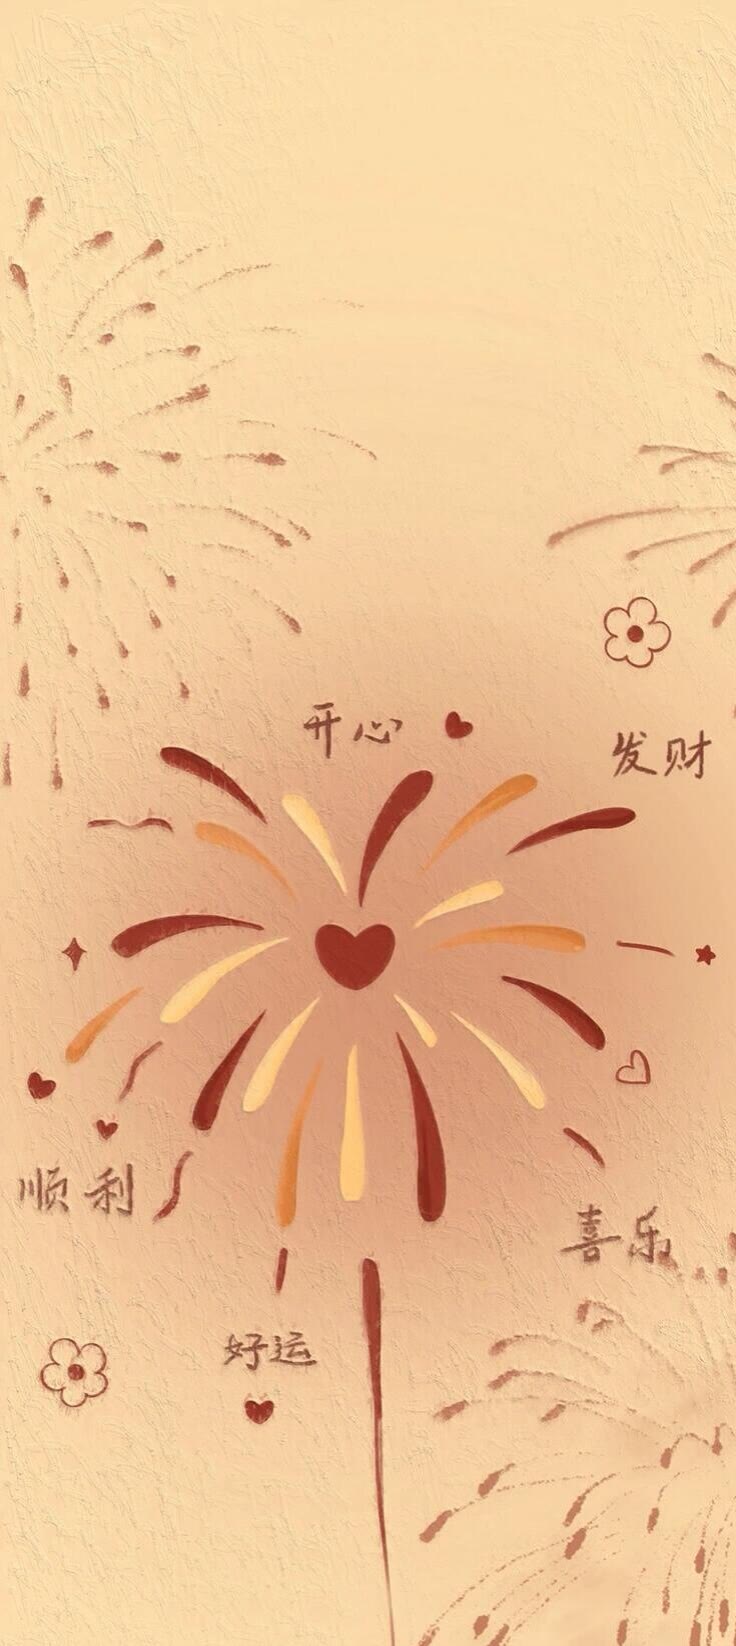 开心
发财
顺利
喜乐
好运